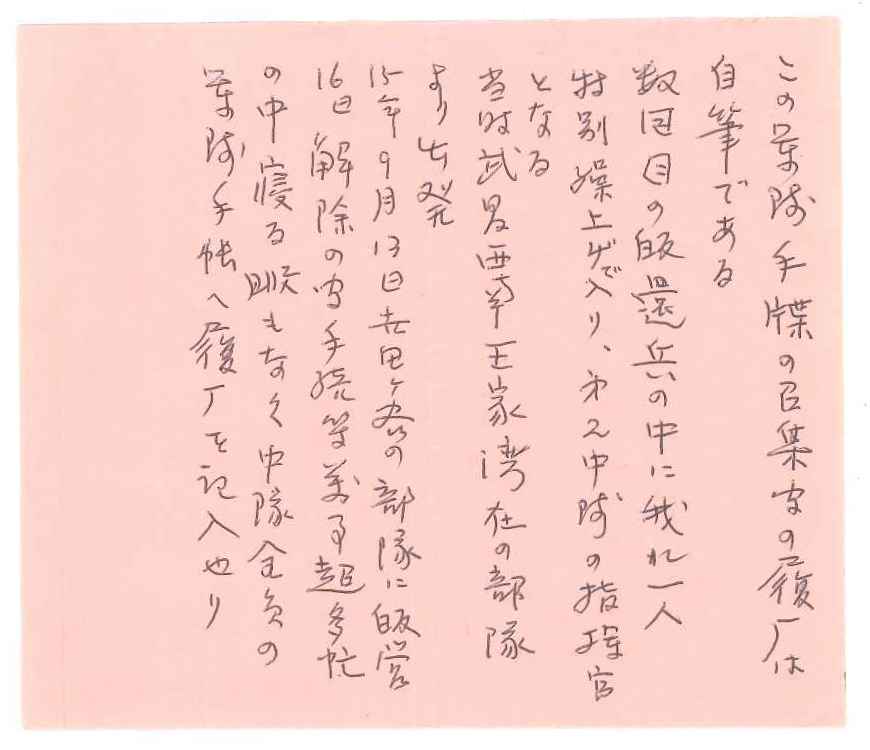 この軍隊手牒の召集の履厂は
自筆である
数回目の皈還兵の中に我れ一人
特別繰上げで入り、才2中隊の指揮官
となる
当時武昌西南王家湾在の部隊
より出発
15年9月13日世田ヶ谷の部隊に皈営
16日解除の手続等万事超多忙
の中寝る暇もなく中隊全員の
軍隊手帳へ履厂を記入せり